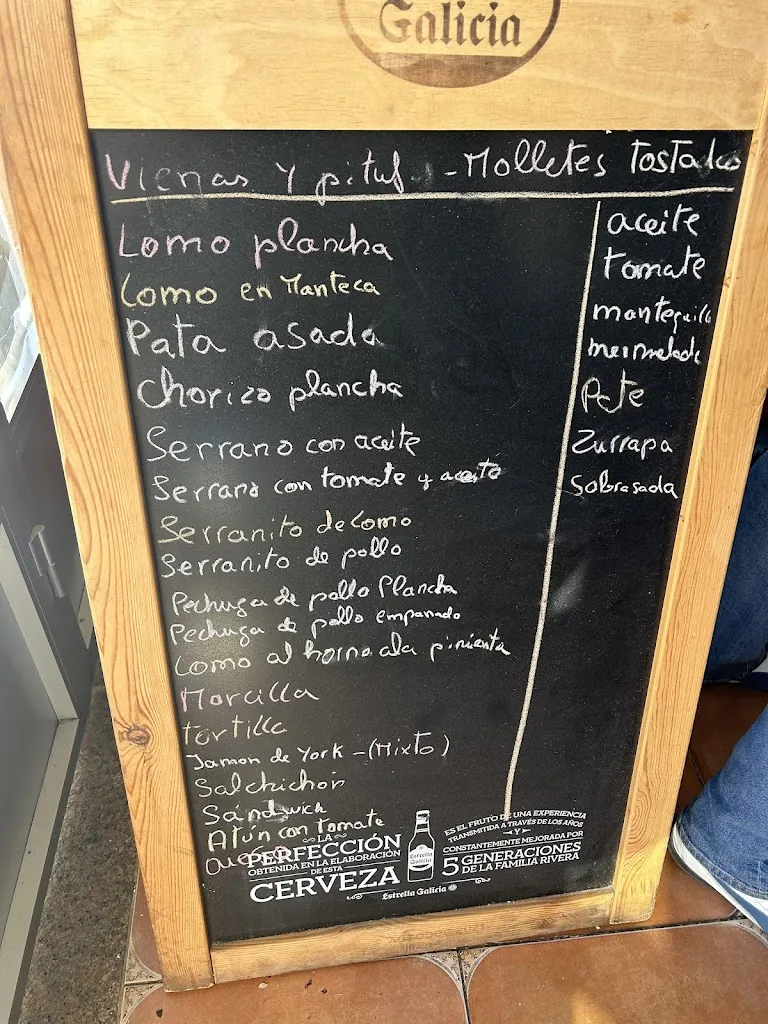 Galicia
Vienas y pituf - Molletes Tostadas
Lomo plancha
Lomo en Manteca
Pata asada
Chorizo plancha
Serrano con aceite
Serrano con tomate y aceite
Serranito de lomo
Serranito de pollo
Pechuga de pollo Plancha
Pechuga de pollo empanado
Lomo al horno a la pimienta
Morcilla
tortilla
Jamon de York - (Mixto)
Salchichón
Sándwich
Atún con tomate
aceite
tomate
mantequilla
mermelada
Pate
Zurrapa
Sobrasada
LA
PERFECCIÓN
OBTENIDA EN LA ELABORACIÓN
DE ESTA
CERVEZA
Estrella Galicia
ES EL FRUTO DE UNA EXPERIENCIA
TRANSMITIDA A TRAVÉS DE LOS AÑOS
Y
CONSTANTEMENTE MEJORADA POR
5 GENERACIONES
DE LA FAMILIA RIVERA
Estrella Galicia